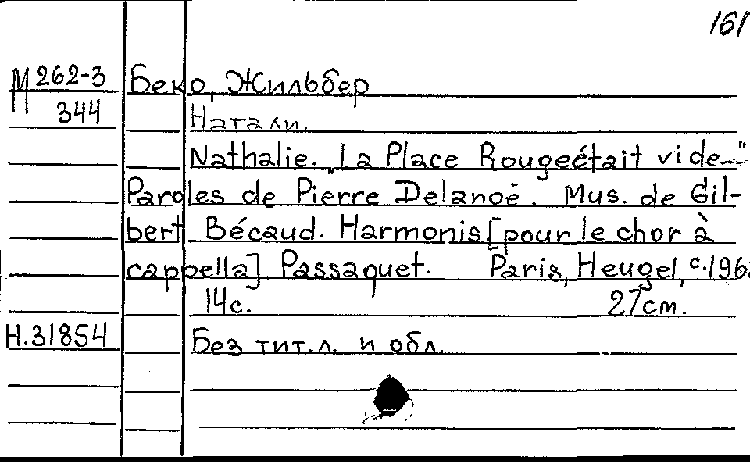 161
М 262-3 Беко, Жильбер
344 Натали.
Nathalie. „La Place Rouge était vide...“
Paroles de Pierre Delanoë. Mus. de Gil-
bert Bécaud. Harmonis [pour le chor à
cappella] Passaquet. Paris, Heugel, c.196
14с. 27см.
Н.31854 Без тит.л. и обл.